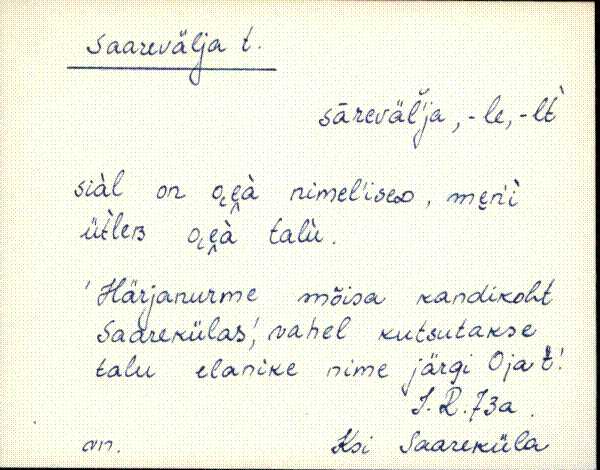 Saarevälja t.
sārevälʹja, -le, -lt̀
siàl on o̭ɛ̭à nimelʹiseᴅ, meṋʹì
üt̀leʙ o̭ɛ̭à talù.
'Härjanurme mõisa kandikoht
Saarekülas', vahel kutsutakse
talu elanike nime järgi Oja t.'
I.R. 73a.
vn. Ksi Saareküla